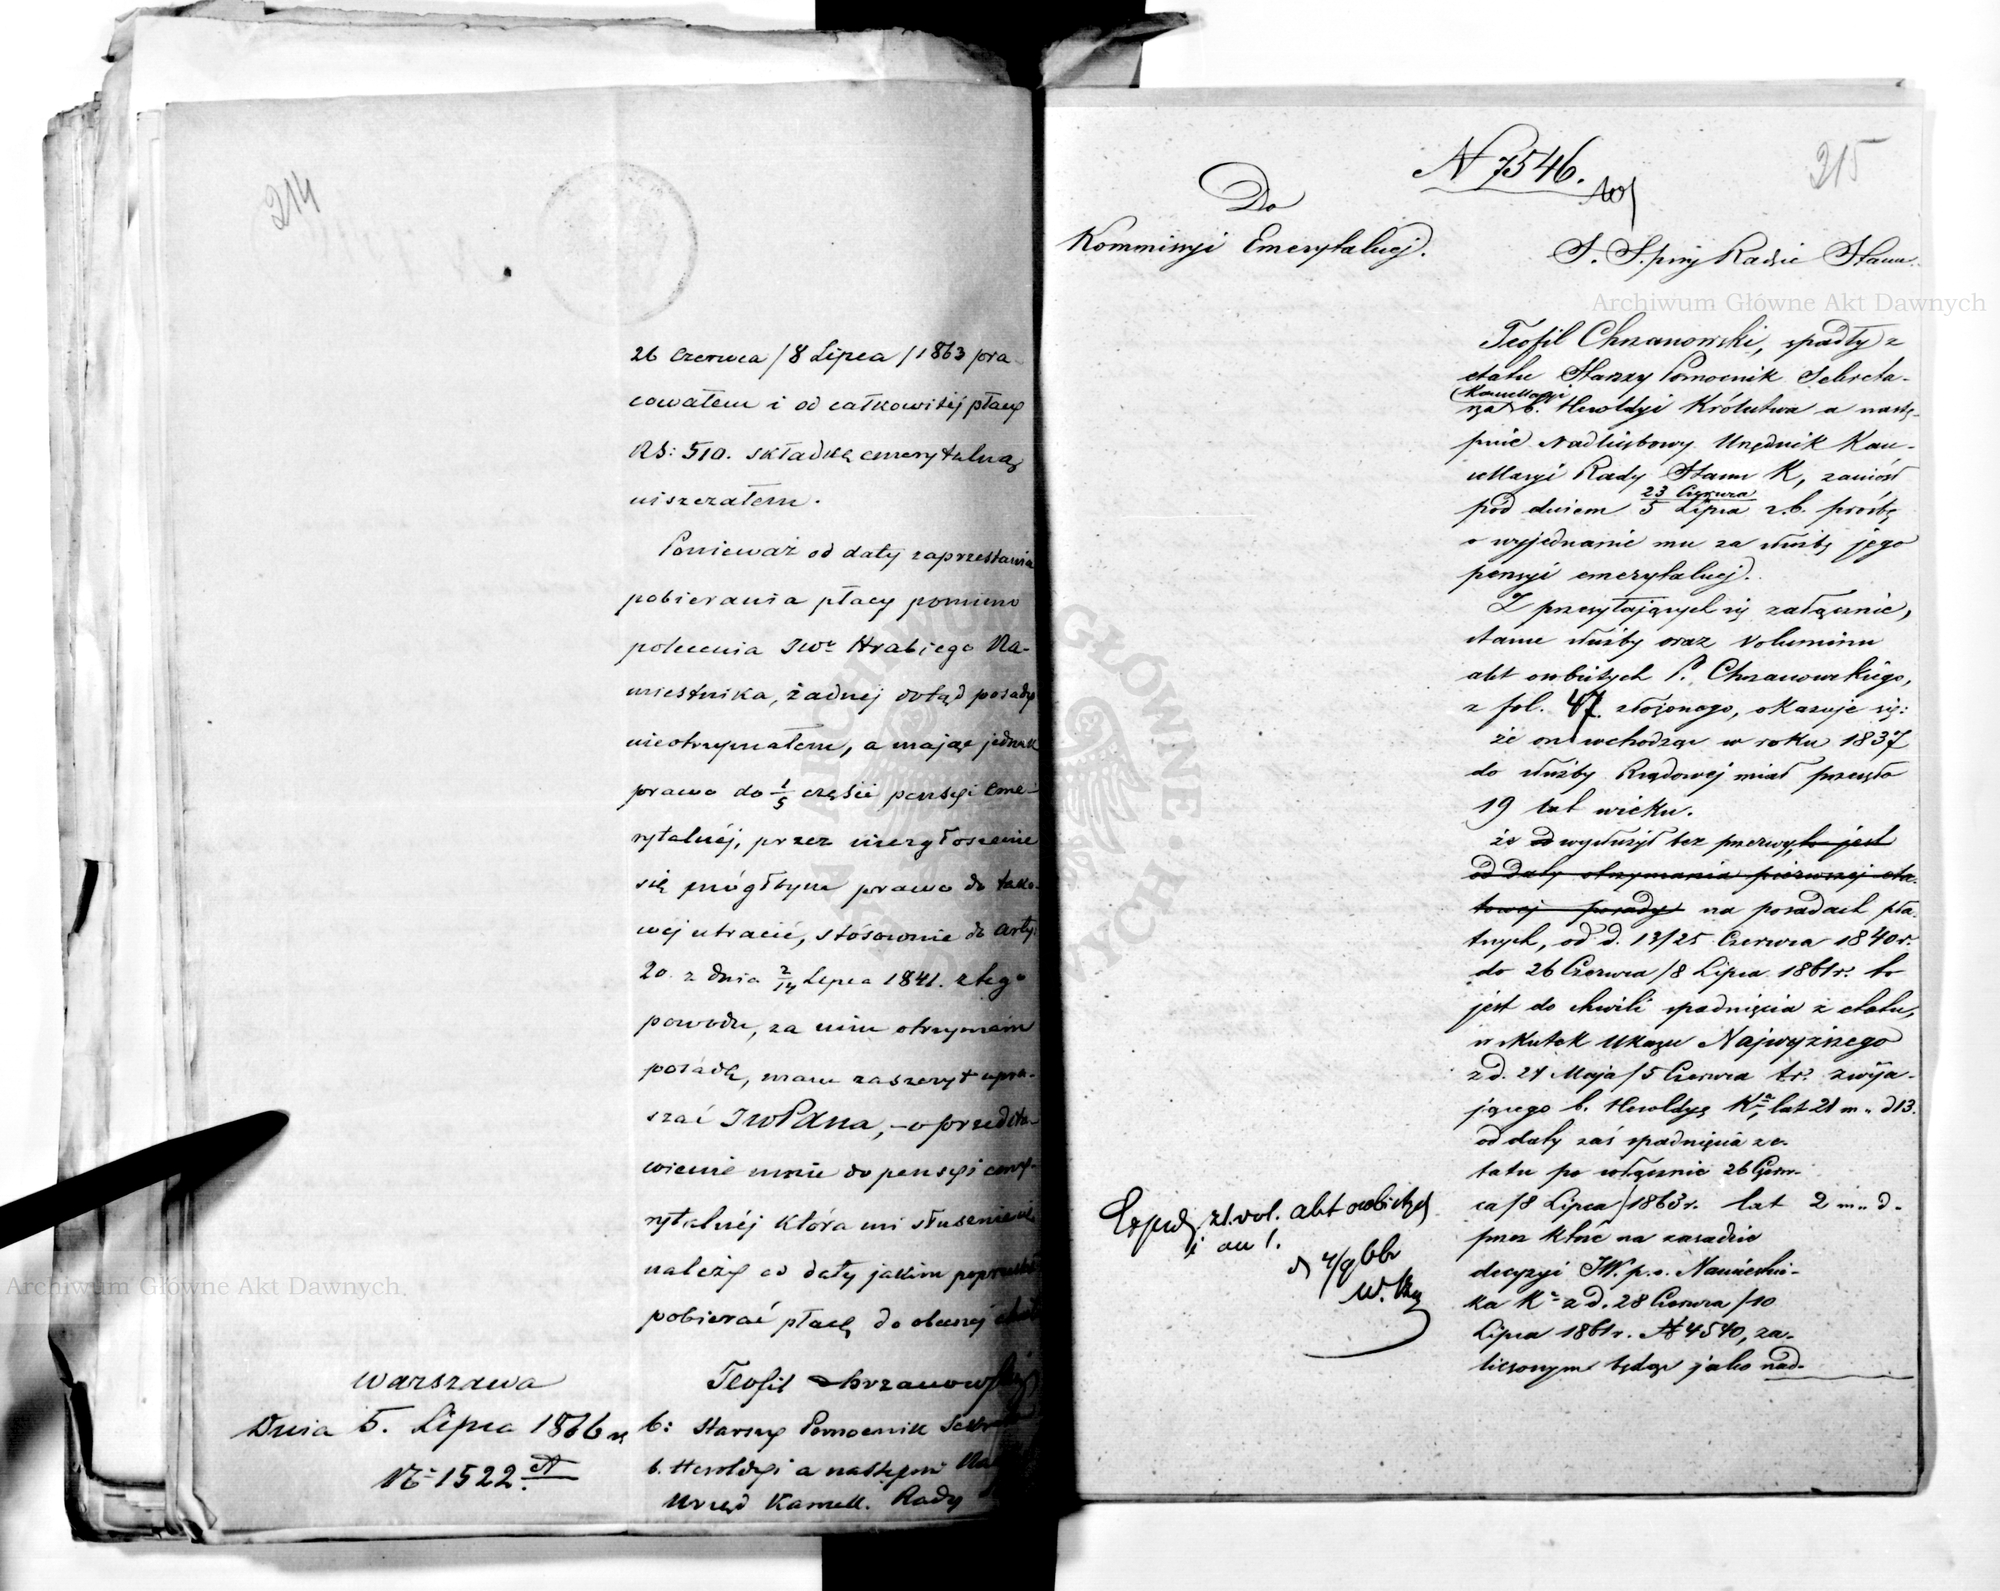 214
26 Czerwca /8 Lipca/ 1863 pra-
cowałem i od całkowitéj płacy
RS: 510. składkę emerytalną
uiszczałem.
Ponieważ od daty zaprzestania
pobierania płacy pomimo
polecenia JWo Hrabiego Na-
miestnika, żadnéj dotąd posady
nieotrzymałem, a mając jednak
prawo do 1/5 części pensyi eme-
rytalnéj, przez niezgłoszenie
się mógłbym prawo do tako-
wéj utracić, stósownie do arty:
20. z dnia 2/14 Lipca 1841. z tego
powodu, za nim otrzymam
posadę, mam zaszczyt upra-
szać JWoPana, o przedsta-
wienie mnie do pensyi eme-
rytalnéj która mi słusznie
należy od daty jakiem poprzestał
pobierać płacę do obecnéj
Warszawa
Dnia 5. Lipca 1866 r
No 1522.
Teofil Chrzanowski
b: Starszy Pomocnik Sekr
b. Heroldyi a następnie Na
Urzęd Kancell. Rady
215
N 7546.
Do
Kommissyi Emerytalnej.
S. S. przy Radzie Stanu.
Teofil Chrzanowski, spadły z
etatu Starszy Pomocnik Sekreta-
Kancellaryi
rza b. Heroldyi Królestwa a nastę-
pnie Nadliczbowy Urzędnik Kan-
cellaryi Rady Stanu K, zaniósł
pod dniem 23 Czerwca/5 Lipca r.b. prośbę
o wyjednanie mu za służbę jego
pensyi emerytalnej.
Z przesyłających się załącznie,
stanu służby oraz voluminu
akt osobistych P. Chrzanowskiego,
z fol. 47. złożonego, okazuje się:
że on wchodząc w roku 1837
do służby Rządowej miał przeszło
19 lat wieku.
że od wysłużył bez przerwy, to jest
od daty otrzymania pierwszej eta-
towej posady na posadach pła-
tnych, od d. 13/25 Czerwca 1840 r.
do 26 Czerwca /8 Lipca 1861 r. to
jest do chwili spadnięcia z etatu,
w skutek Ukazu Najwyższego
z d. 24 Maja /5 Czerwca t.r. zwija-
jącego b. Heroldyę Kа, lat 21 m „ d 13.
od daty zaś spadnięcia z e-
tatu po włącznie 26 Czerw-
ca /8 Lipca/ 1863 r. lat 2 m „ d -
przez które na zasadzie
decyzyi JW. p.o. Namiestni-
ka Kа z d. 28 Czerwca /10
Lipca 1861 r. N 4540, za-
liczonym będąc jako nad-
Exped. z 1. vol. akt osobistych
i an 1.